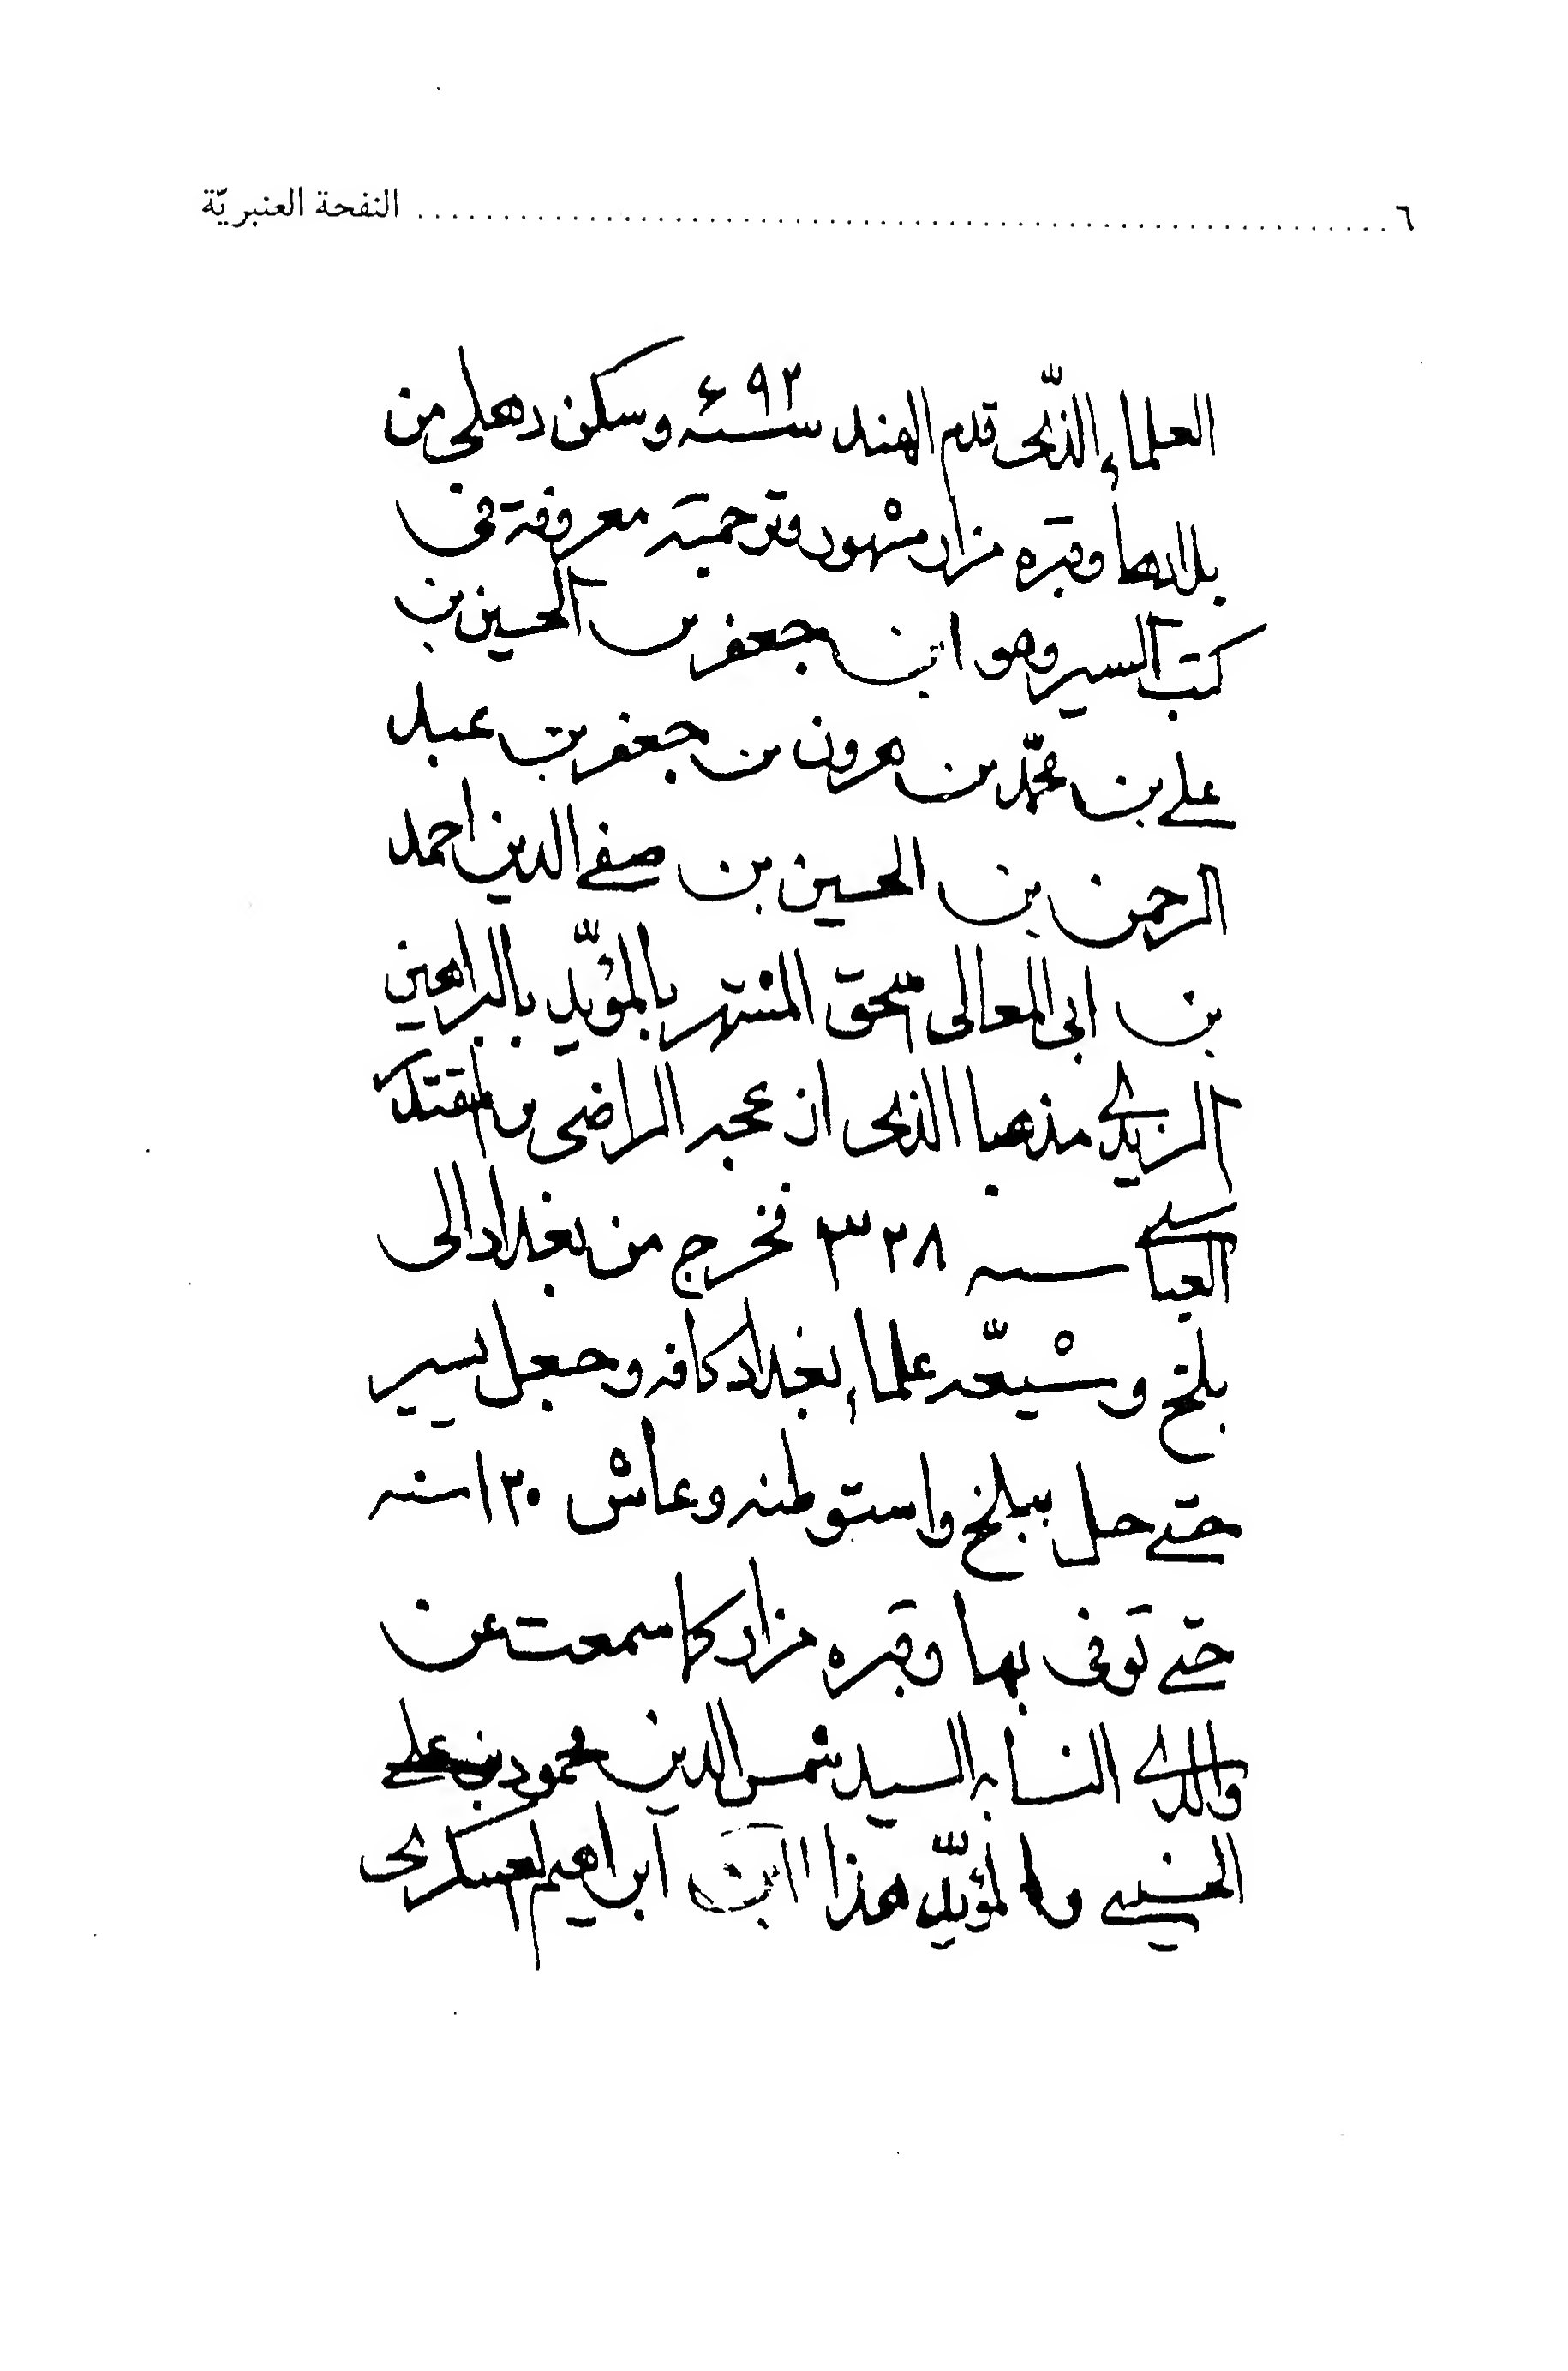 ٦ ........ النفحة العنبريّة
العلماء الذّى قدم الهند سنه ٦٩٢ وسكن دهلى من
بلادها وقبره مزار مشهور وترجمته معروفة فى
كتب السير وهو ابن جعفر بن الحسين بن
على بن محمّد بن هرون بن جعفر بن عبد
الرحمن بن الحسين بن صفى الدين احمد
بن ابى المعالى اسحق المشتهر بالمؤيّد بالبراهين
الزيدى مذهبا الذى ان عجبه الراضى المقتدر
العباسى سنه ٣٢٨ فخرج من بغداد الى
بلخ وشيّعه علماء بغداد كافه وجعل يسير
حتى حل ببلخ واستوطنه وعاش ١٣٠ سنه
حتى توفى بها وقبره مزار كما سمعت عن
والدى النسابه السيد شمس الدين محمود بن على
الحسينى والمؤيّد هذا ابن ابراهيم العسكرى